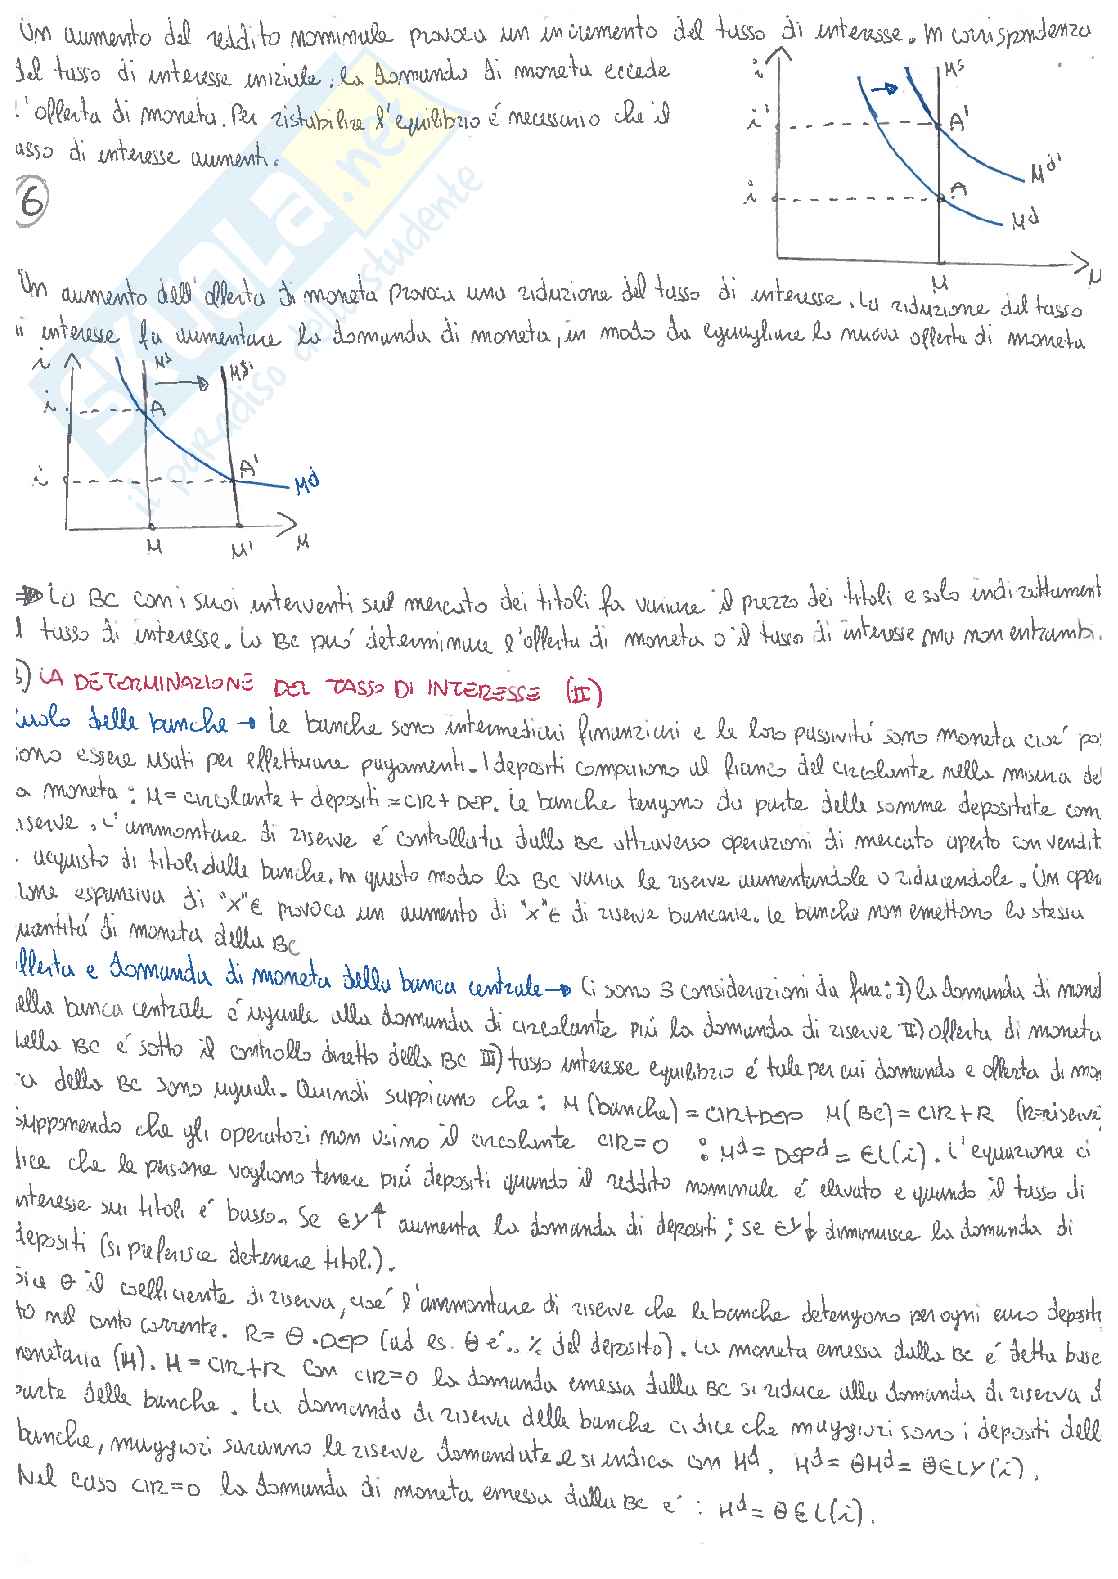 Un aumento del reddito nominale provoca un incremento del tasso di interesse. In corrispondenza
del tasso di interesse iniziale, la domanda di moneta eccede
l'offerta di moneta. Per ristabilire l'equilibrio é necessario che il
asso di interesse aumenti.
i
Ms
i'
A'
Md'
i
A
Md
M
M
6
Un aumento dell'offerta di moneta provoca una riduzione del tasso di interesse. La riduzione del tasso
di interesse fa aumentare la domanda di moneta, in modo da eguagliare la nuova offerta di moneta
i
Ms
Ms'
i
A
i
A'
Md
M
M'
M
SKUOLA.net
il paradiso dello studente
⇒ La BC con i suoi interventi sul mercato dei titoli fa variare il prezzo dei titoli e solo indirettament
l tasso di interesse. La BC puó determinare l'offerta di moneta o il tasso di interesse ma non entrambi.
3) LA DETERMINAZIONE DEL TASSO DI INTERESSE (II)
Ruolo delle banche → Le banche sono intermediari finanziari e le loro passivitá sono moneta cioé pos
sono essere usati per effettuare pagamenti. I depositi compaiono al fianco del circolante nella misura del
a moneta: M = circolante + depositi = CIR + DEP. Le banche tengono da parte delle somme depositate com
riserve. L'ammontare di riserve é controllata dalla BC attraverso operazioni di mercato aperto con vendit
acquisto di titoli dalle banche. In questo modo la BC varia le riserve aumentandole o riducendole. Un oper
zione espansiva di "x"€ provoca un aumento di "x"€ di riserve bancarie. Le banche non emettono la stessa
quantitá di moneta della BC
Offerta e domanda di moneta della banca centrale → Ci sono 3 considerazioni da fare: I) la domanda di monet
della banca centrale é uguale alla domanda di circolante piú la domanda di riserve II) offerta di moneta
della BC é sotto il controllo diretto della BC III) tasso interesse equilibrio é tale per cui domanda e offerta di mon
ta della BC sono uguali. Quindi sappiamo che: M (banche) = CIR+DEP M(BC) = CIR+R (R=riserve
supponendo che gli operatori non usino il circolante CIR=0 : Md = DEPd = €L(i). L'equazione ci
dice che le persone vogliono tenere piú depositi quando il reddito nominale é elevato e quando il tasso di
interesse sui titoli é basso. Se €Y↑ aumenta la domanda di depositi; se €Y↓ diminuisce la domanda di
depositi (si preferisce detenere titoli).
Sia θ il coefficiente di riserva, cioé l'ammontare di riserve che le banche detengono per ogni euro deposita
to nel conto corrente. R = θ·DEP (ad es. θ é .. % del deposito). La moneta emessa dalla BC é detta base
monetaria (H). H = CIR+R Con CIR=0 la domanda emessa dalla BC si riduce alla domanda di riserva d
parte delle banche. La domanda di riserva delle banche ci dice che maggiori sono i depositi dell
banche, maggiori saranno le riserve domandate e si indica con Hd. Hd = θMd = θ€LY(i).
Nel caso CIR=0 la domanda di moneta emessa dalla BC é: Hd = θ€L(i).